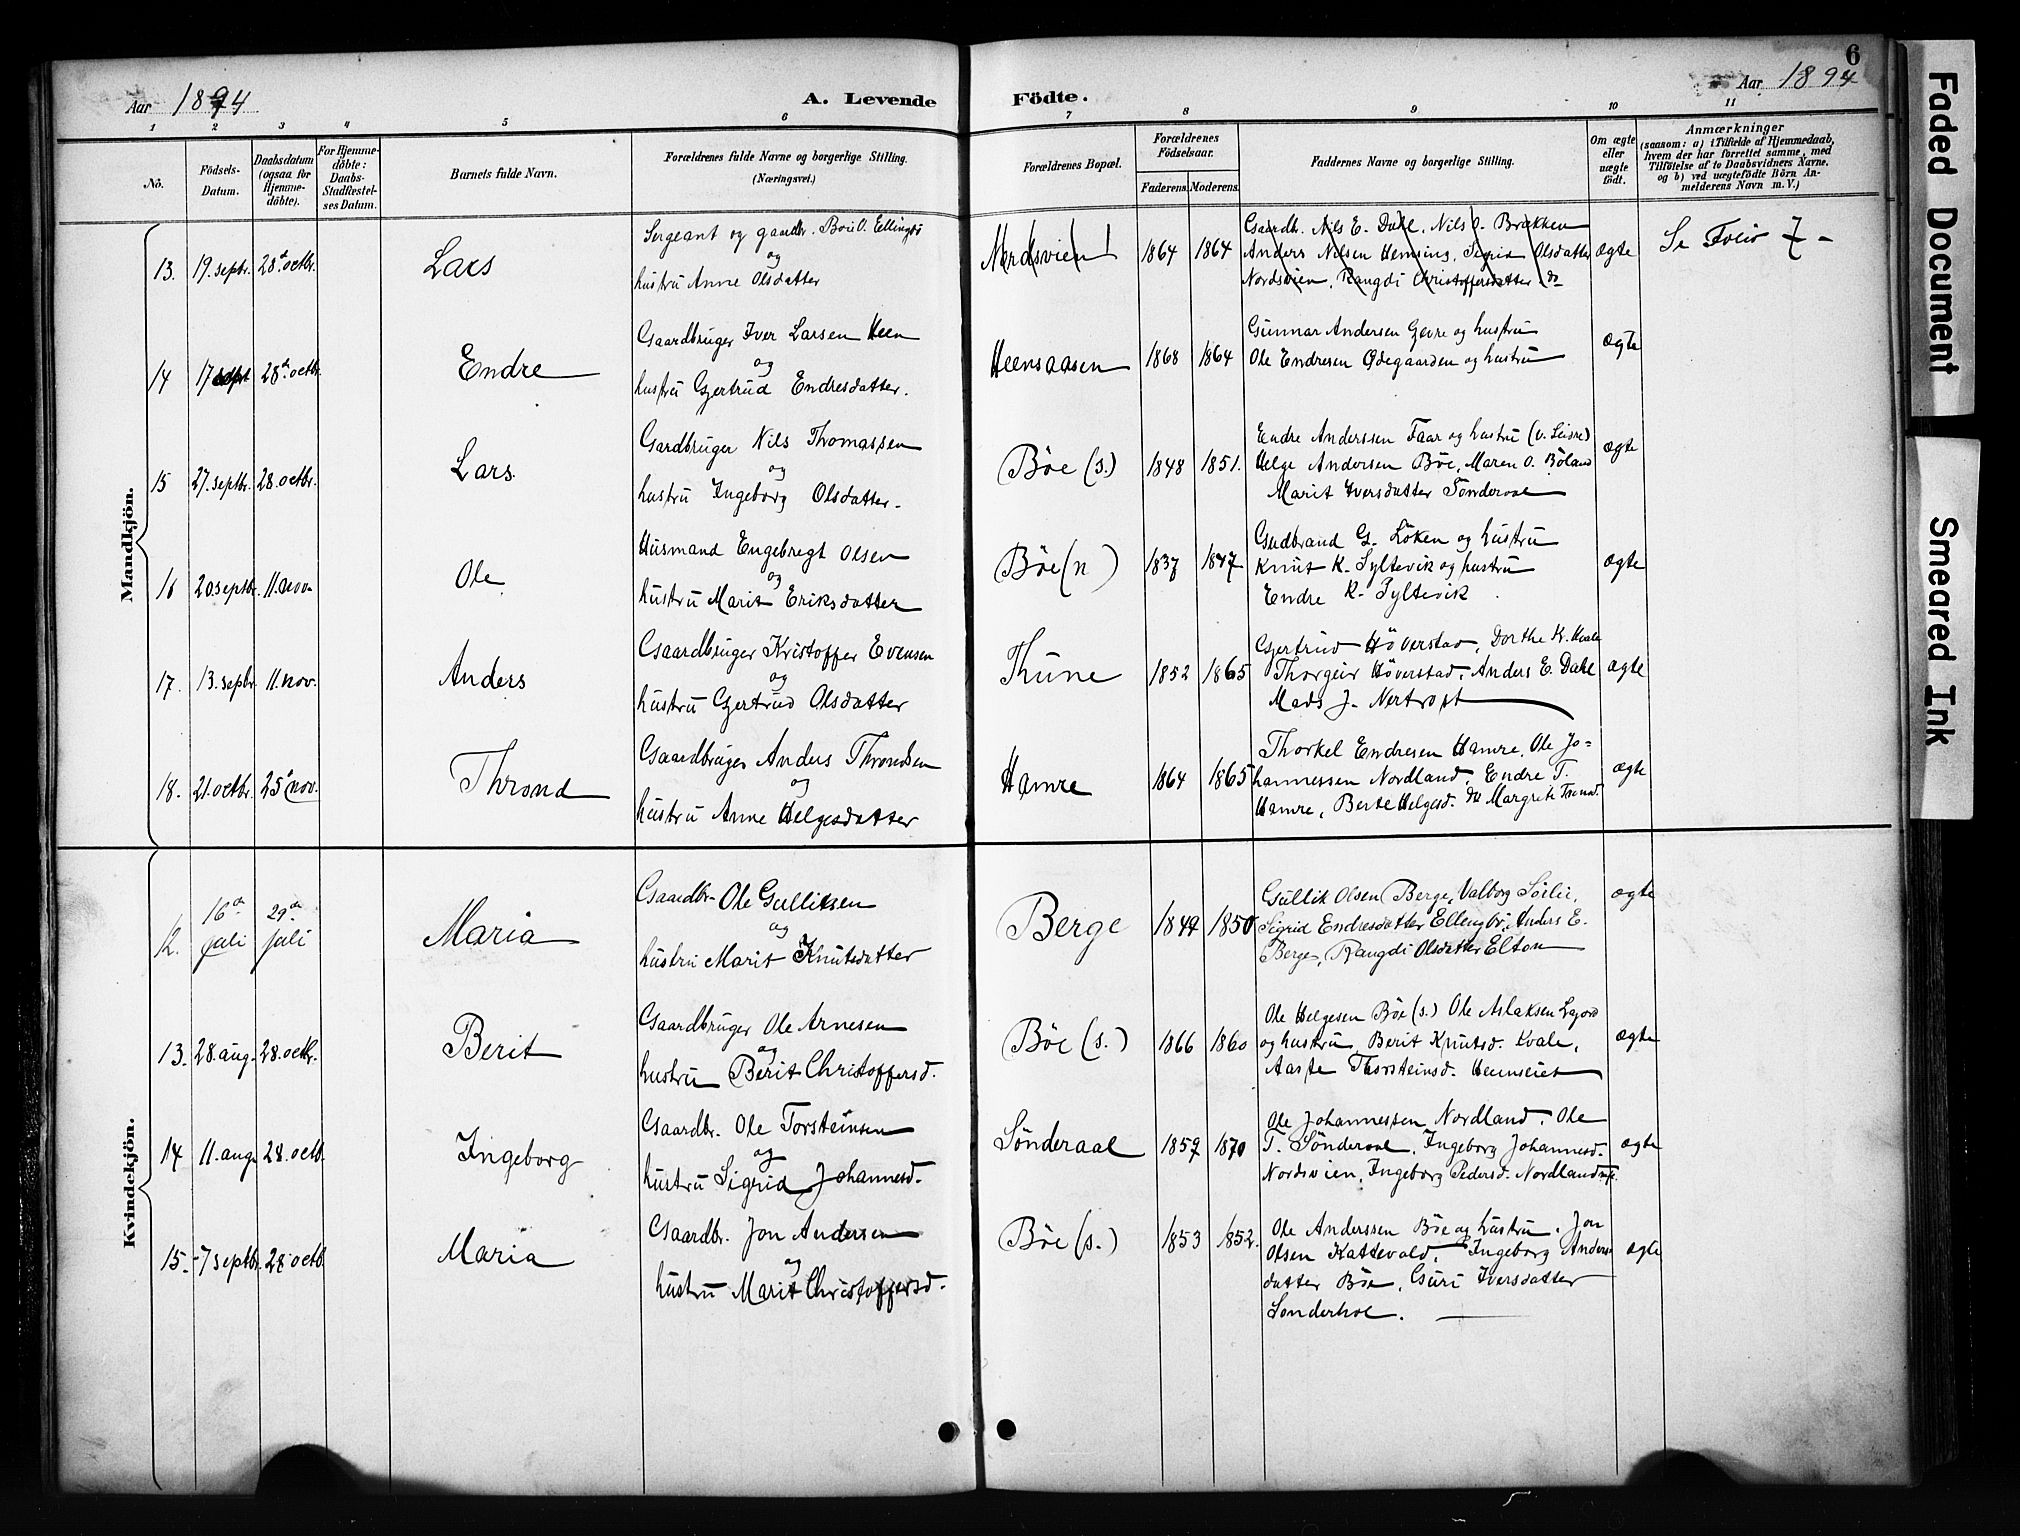 Aar 1894
A. Levende
Födte.
Aar 1894
6
1 2 3 4 5 6 7 8 9 10 11
No.
Födsels-Datum.
Daabsdatum (ogsaa for Hjemme-döbte).
For Hjemme-döbte: Daabs-Stadfæstel-ses Datum.
Barnets fulde Navn.
Forældrenes fulde Navne og borgerlige Stilling.
(Næringsvei.)
Forældrenes Bopæl.
Forældrenes Födselsaar.
Faderens. Moderens.
Faddernes Navne og borgerlige Stilling.
Om ægte eller uægte födt.
Anmærkninger
(saasom: a) i Tilfælde af Hjemmedaab,
hvem der har forrettet samme, med
Tilföielse af to Daabsvidners Navne,
og b) ved uægtefödte Börn An-
melderens Navn m. V.)
Mandkjön.
13. 19. septr. 28de octbr. Lars
Sergeant og gaardbr. Boie O. Ellingbö
og
hustru Anne Olsdatter
Nordsvien 1864 1864
Gaardbr. Nils E. Dahl, Nils O. Brækken
Anders Nilsen Hemsing, Sigrid Olsdatter
Nordsvien, Rangdi Christoffersdatter do
ægte
Se Folio 7 -
14 17 sept 28de octbr. Endre
Gaardbruger Iver Larsen Heen
og
hustru Gjertrud Endresdatter.
Heensaasen 1868 1864
Gunnar Andersen Gjevre og hustru
Ole Endresen Ödegaarden og hustru
ægte
15 27. septbr. 28. octbr. Lars
Gardbruger Nils Thomassen
og
hustru Ingeborg Olsdatter.
Böe (s.) 1848 1851.
Endre Anderssen Faar og hustru
Helge Andersen Böe, Maren O. Böland
Marit Iversdatter Sönderaal
ægte
16 20. septbr. 11. nov. Ole
Husmand Engebregt Olsen
og
hustru Marit Eriksdatter
Böe (n) 1837 1847
Gudbrand G. Löken og hustru
Knut K. Syltevik og hustru
Endre K. Syltevik
ægte
17. 13. sepbr. 11. nov. Anders
Gaardbruger Kristoffer Evensen
og
hustru Gjertrud Olsdatter
Thune 1852 1865
Gjertrud Höverstad, Dorthe K. Kvale
Thorgeir Höverstad, Anders E. Dahl
Mads J. Nertrost
ægte
18. 21. octbr. 25de nov. Thrond
Gaardbruger Anders Throndsen
og
hustru Anne Helgesdatter
Hamre 1864 1865
Thorkel Endresen Hamre, Ole Jo-
hannessen Nordland, Endre T.
Hamre, Berte Helgesd. do Margrete
ægte
Kvindekjön.
12. 16de juli 29de juli Maria
Gaardbr. Ole Gulliksen
og
hustru Marit Knutsdatter
Berge 1844 1850
Gullik Olsen Berge, Valborg
Sigrid Endresdatter Ellingbö, Anders E.
Berge, Rangdi Olsdatter Elton
ægte
13. 28. aug. 28. octbr. Berit
Gaardbruger Ole Arnesen
og
hustru Berit Christoffersd.
Böe (s.) 1866 1860
Ole Helgesen Böe (s.) Ole Aslaksen
og hustru, Berit Knutsd. Kvale,
Aaste Thorsteinsd.
ægte
14 11. aug. 28. octb. Ingeborg
Gaardbr. Ole Torsteinsen
og
hustru Sigrid Johannesd.
Sönderaal 1859 1870
Ole Johannessen Nordland, Ole
T. Sönderaal, Ingeborg Johannesd.
Nordsvien, Ingeborg Pedersd. Nordland
ægte
15. 7 septbr. 28 octb. Maria
Gaardbr. Jon Andersen
og
hustru Marit Christoffersd.
Böe (s.) 1853 1852.
Ole Anderssen Böe og hustru, Jon
Olsen Kattevold, Ingeborg Anders
datter Böe, Guri Iversdatter
Sönderhol.
ægte
Faded Document
Smeared Ink